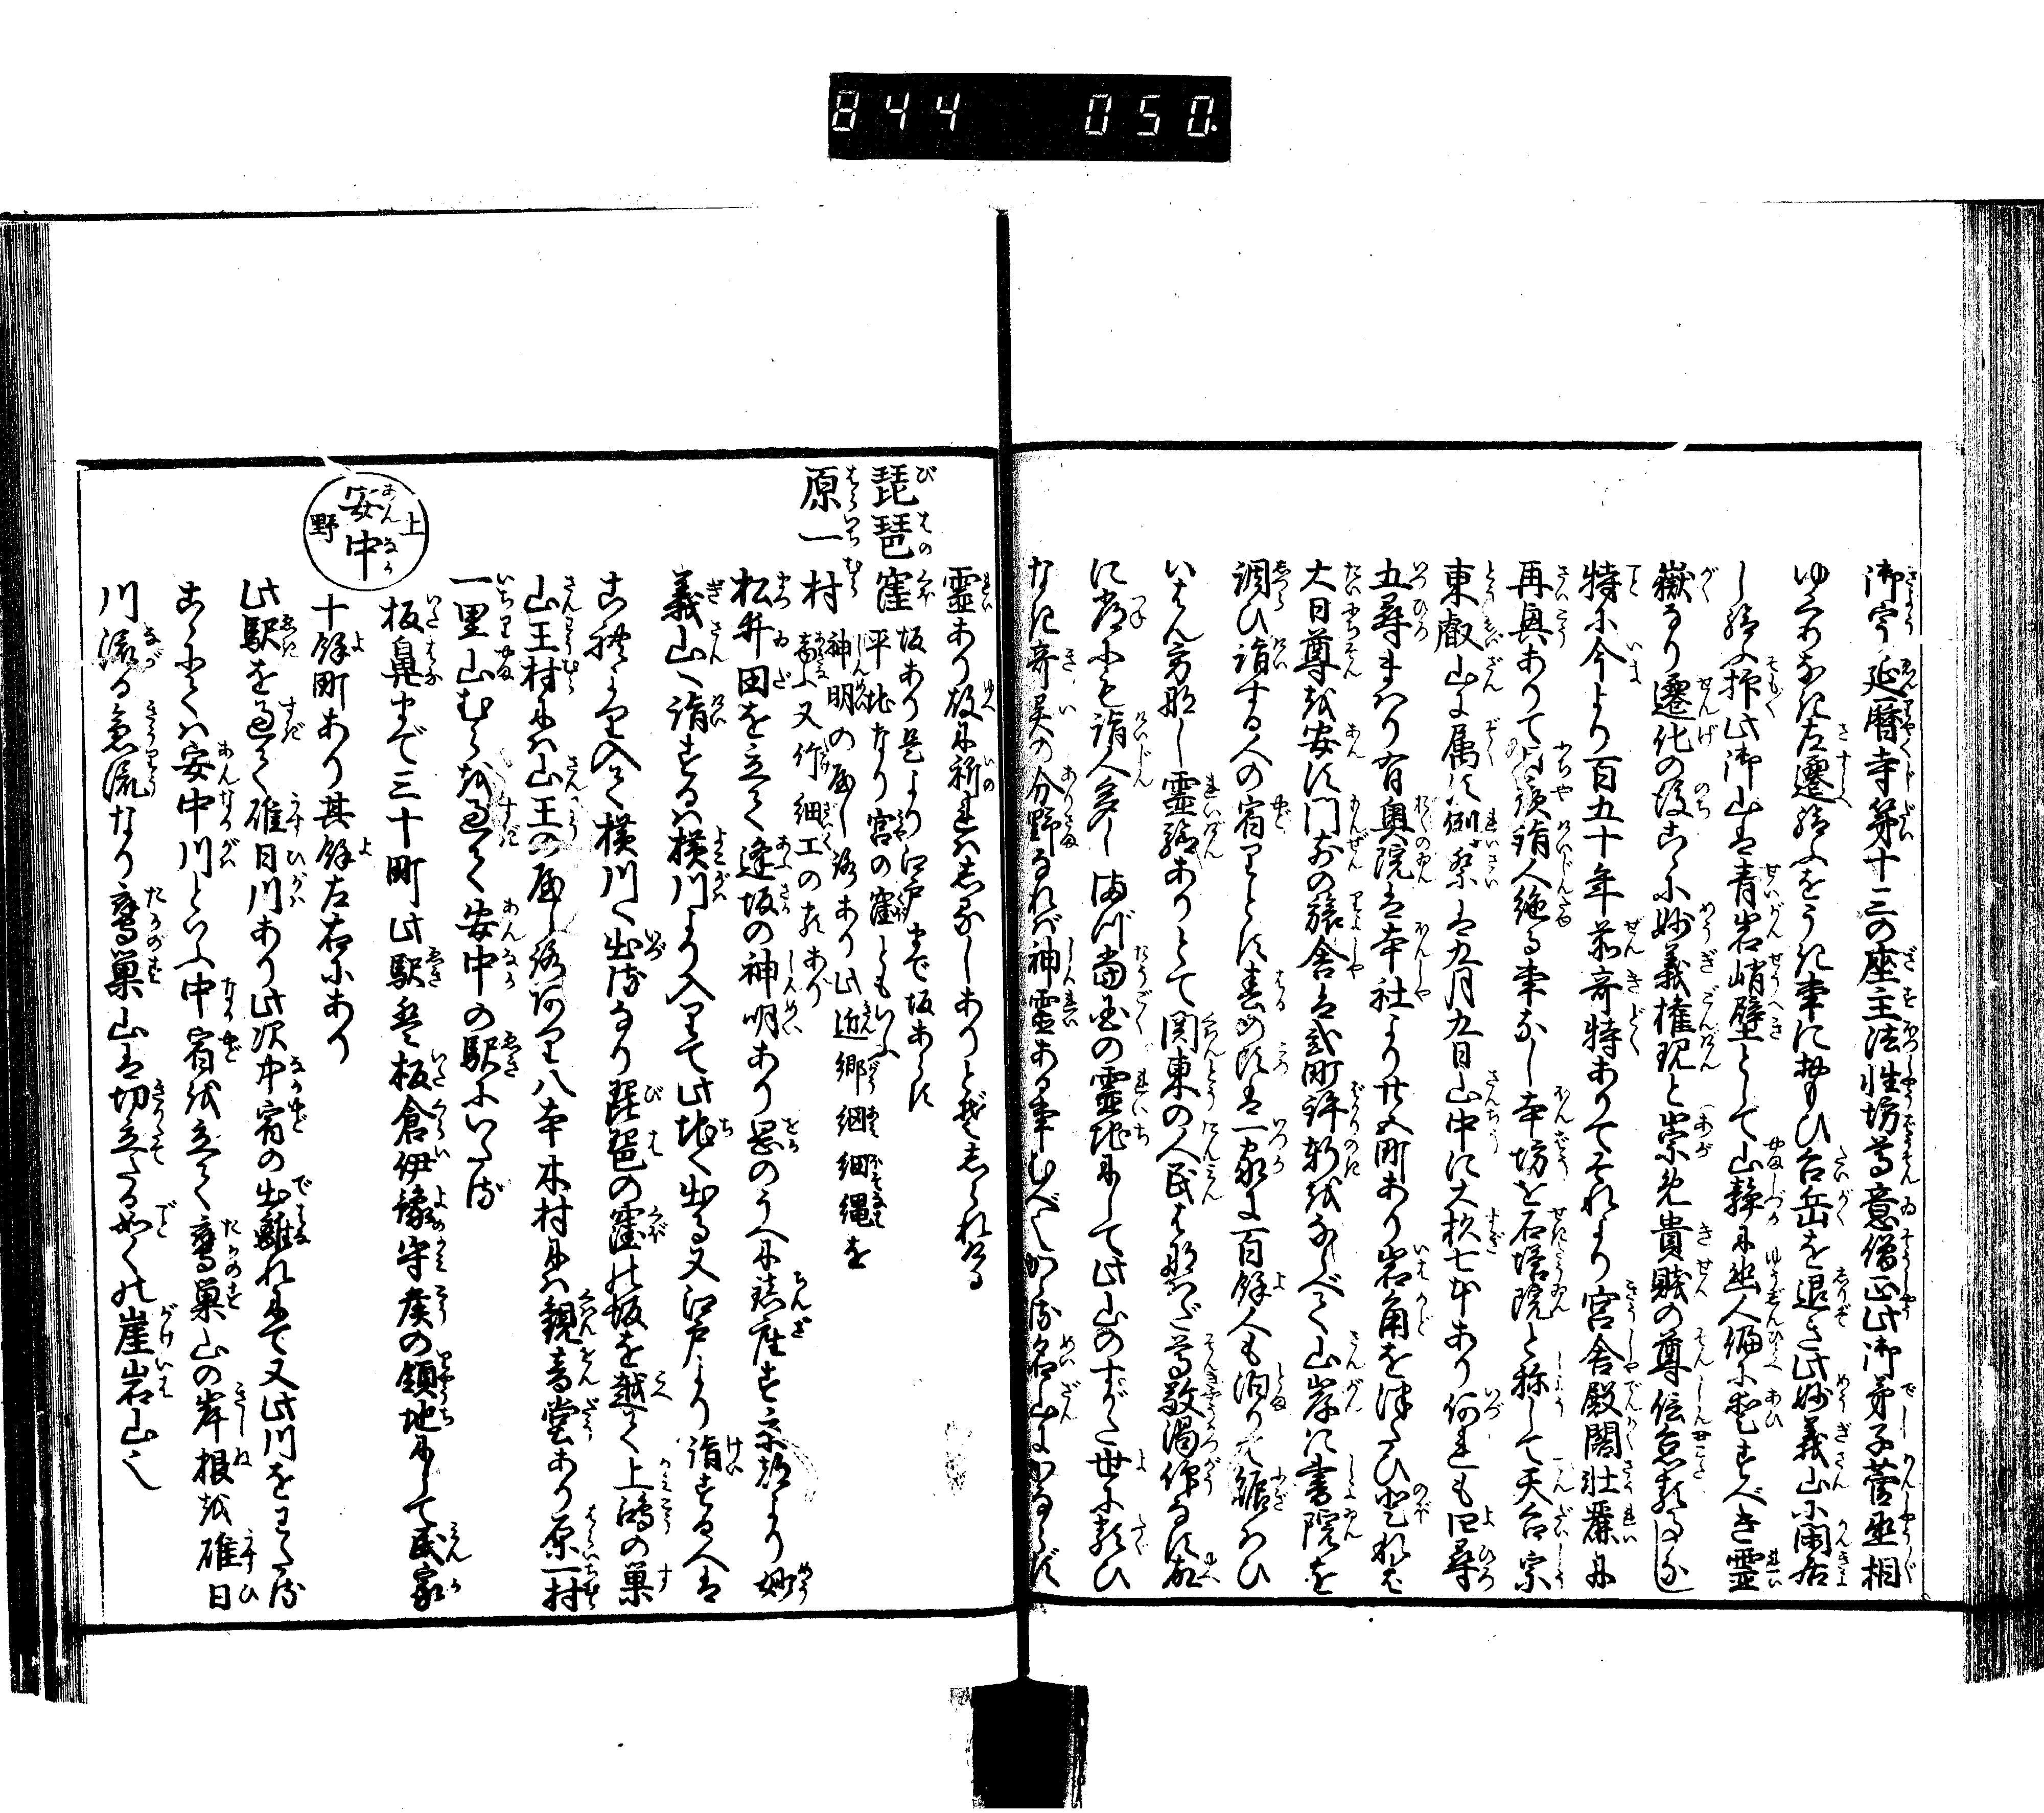 844 050
御宇延暦寺第十三の座主法性坊尊意僧正此御弟子菅丞相
ゆゑあなき左遷給ふをうき事に思ひ台岳を退き此妙義山に閑居
し給ふ抑此御山は青岩峭壁として山静に幽人偏に愛すべき霊
嶽なり遷化の後こゝに妙義権現と崇め貴賤の尊信怠慢なし
特に今より百五十年前奇特ありてそれより宮舎殿閣壮麗に
再興ありて 詣人絶る事なし本坊を石塔院と称して天台宗
東叡山に属す例祭は九月九日山中に大杦七本あり何れも四尋
五尋まはり有奥院は本社より廿五町あり岩角をつたひ登れば
大日尊を安す門前の旅舎は弐町許軒をならべて山岸に書院を
調ひ詣する人の宿りとす春の頃は一家に百餘人も泊りて
いはん方なし霊驗ありとて関東の人民はなはだ尊敬渇仰なす故
に常にも詣人多し 当国の霊地にして此山のすがた世に類ひ
なき奇異の分野なれば神霊ある事むべしかゝる名山にかならず
霊あり故に祈れば しありとぞしられける
琵琶窪 坂あり是より江戸まで坂あらず
平地なり宮の窪ともいふ
原一村 神明の森し路あり此近郷綱細縄を
商ふ又竹細工の類あり
松井田を立て逢坂の神明あり  のうへに鎮座す京都より妙
義山へ詣するは横川より入りて此地へ出る又江戸より詣する人は
こゝより入て横川へ出るなり琵琶の窪の坂を越て上鴻の巣
山王村には山王の森し路 八本木村には観音堂あり原一村
一里山むらを過て安中の駅にいたる
上野 安中
板鼻まで三十町此駅は板倉伊豫守侯の領地にして民家
十餘町あり其餘左右にあり
此駅を過て碓日川あり此次中宿の出離れにて又此川をわたる
こゝにては安中川といふ中宿を立て鷹巣山の岸根を碓日
川流る急流なり鷹巣山は切立たる如くの崖岩山也